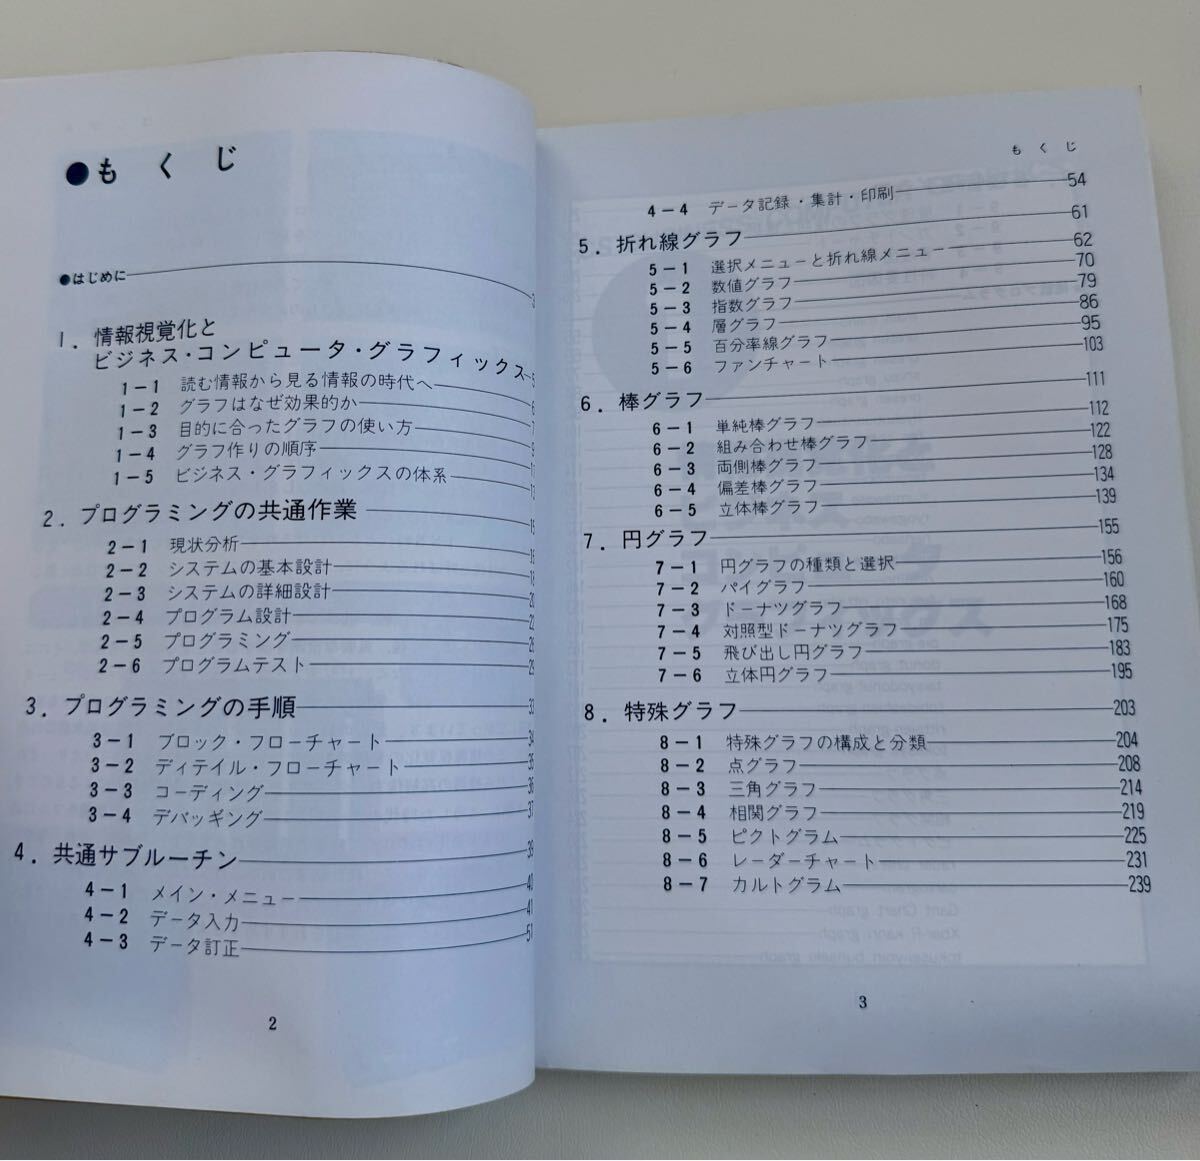 ●もくじ
●はじめに
1. 情報視覚化と
ビジネス・コンピュータ・グラフィックス 5
1-1 読む情報から見る情報の時代へ 6
1-2 グラフはなぜ効果的か 7
1-3 目的に合ったグラフの使い方 9
1-4 グラフ作りの順序
1-5 ビジネス・グラフィックスの体系 13
2. プログラミングの共通作業 15
2-1 現状分析
2-2 システムの基本設計 18
2-3 システムの詳細設計 20
2-4 プログラム設計
2-5 プログラミング
2-6 プログラムテスト 29
3. プログラミングの手順 33
3-1 ブロック・フローチャート 34
3-2 ディテイル・フローチャート 35
3-3 コーディング 36
3-4 デバッギング 37
4. 共通サブルーチン 39
4-1 メイン・メニュー 40
4-2 データ入力 41
4-3 データ訂正 51
2
もくじ
4-4 データ記録・集計・印刷 54
5. 折れ線グラフ 61
5-1 選択メニューと折れ線メニュー 62
5-2 数値グラフ 70
5-3 指数グラフ 79
5-4 層グラフ 86
5-5 百分率線グラフ 95
5-6 ファンチャート 103
6. 棒グラフ 111
6-1 単純棒グラフ 112
6-2 組み合わせ棒グラフ 122
6-3 両側棒グラフ 128
6-4 偏差棒グラフ 134
6-5 立体棒グラフ 139
7. 円グラフ 155
7-1 円グラフの種類と選択 156
7-2 パイグラフ 160
7-3 ドーナツグラフ 168
7-4 対照型ドーナツグラフ 175
7-5 飛び出し円グラフ 183
7-6 立体円グラフ 195
8. 特殊グラフ 203
8-1 特殊グラフの構成と分類 204
8-2 点グラフ 208
8-3 三角グラフ 214
8-4 相関グラフ 219
8-5 ピクトグラム 225
8-6 レーダーチャート 231
8-7 カルトグラム 239
3